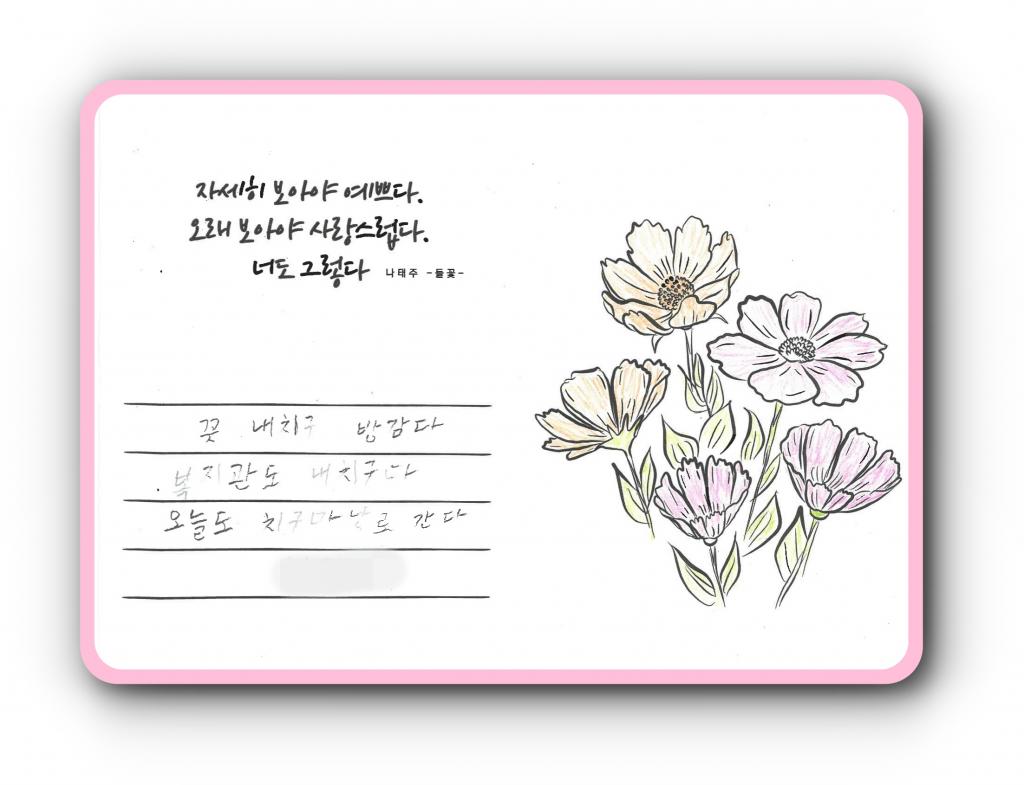 자세히 보아야 예쁘다.
오래 보아야 사랑스럽다.
너도 그렇다 나태주 -들꽃-
꽃 내치구 방감다
복지관도 내치구다
오늘도 치구마날로 간다